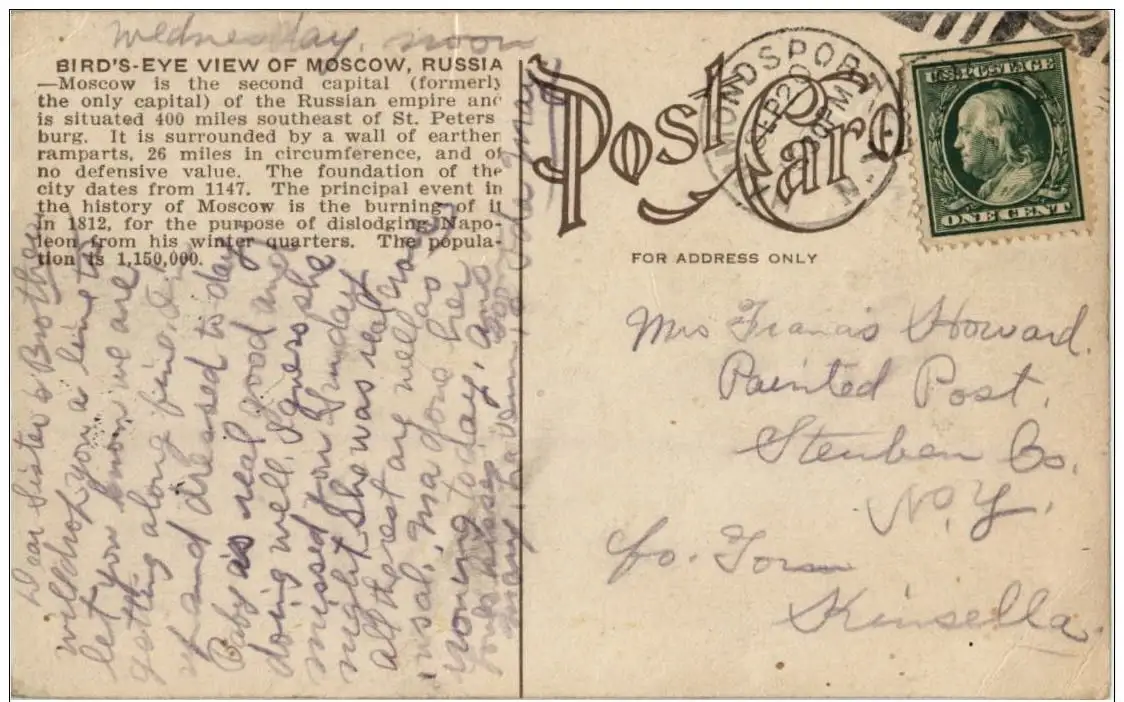 Wednesday, noon
BIRD'S-EYE VIEW OF MOSCOW, RUSSIA
—Moscow is the second capital (formerly
the only capital) of the Russian empire and
is situated 400 miles southeast of St. Peters
burg. It is surrounded by a wall of earthen
ramparts, 26 miles in circumference, and of
no defensive value. The foundation of the
city dates from 1147. The principal event in
the history of Moscow is the burning of it
in 1812, for the purpose of dislodging Napo-
leon from his winter quarters. The popula-
tion is 1,150,000.
Dear Sister & Brother
will drop you a line to
let you know we are
getting along fine,
up and dressed to day
Baby is real good and
doing well. Agnes she
missed you Sunday
night She was real
all the rest are well
usal. Ma done her
today, and
many
Post Card
MONDSPORT
SEP 2
PM
N.Y.
U.S. POSTAGE
ONE CENT
FOR ADDRESS ONLY
Mrs Francis Howard.
Painted Post.
Steuben Co.
N.Y.
Co. Tom
Kinsella.